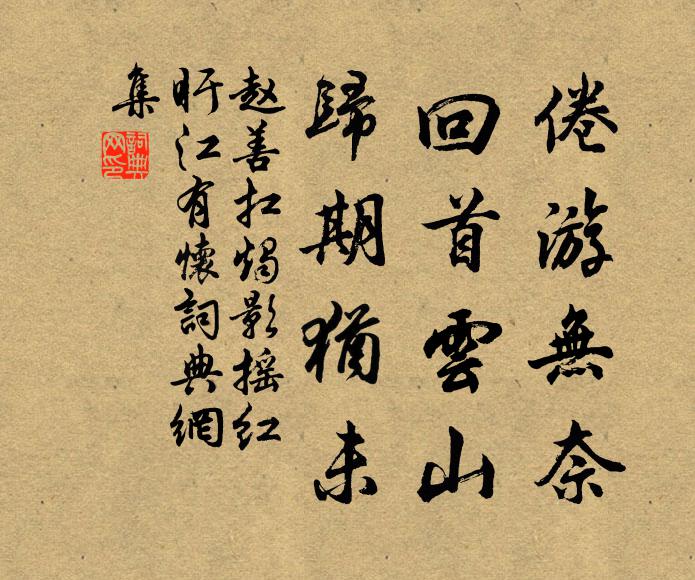 倦游無奈
回首雲山
歸期猶未
赵善扛燭影摇红
盱江有懷詞典網
集
詞典
网印